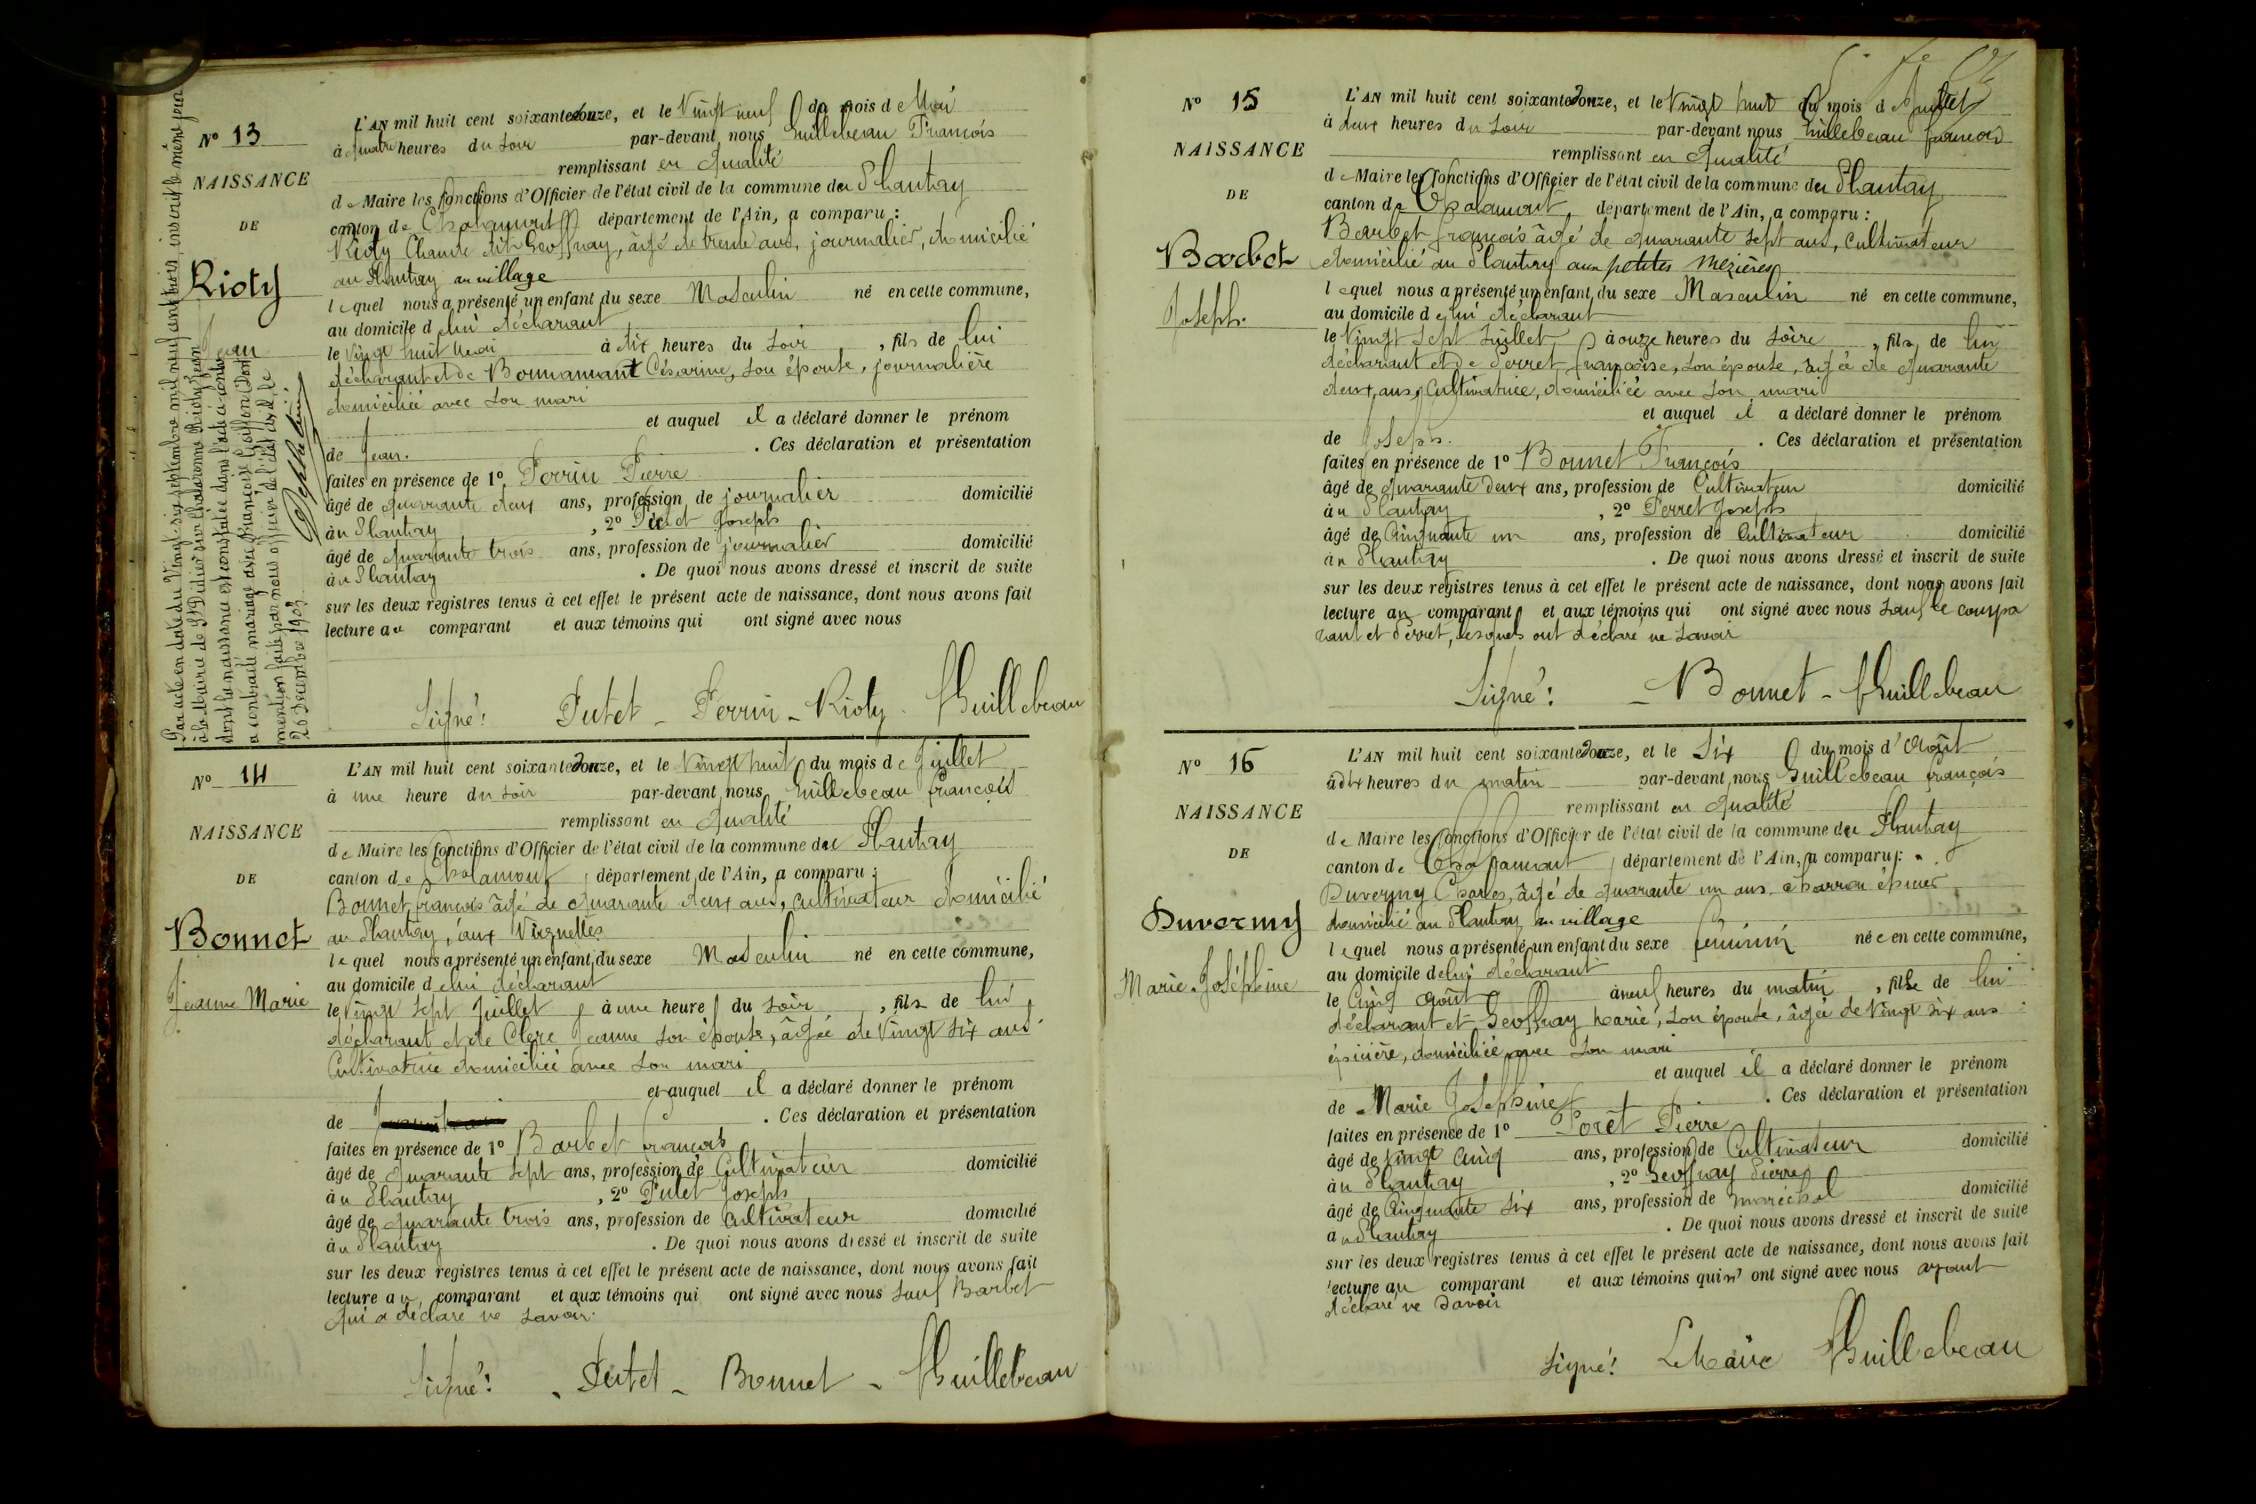 N° 13
NAISSANCE
DE
Rioty
Jean
Par acte en date du Vingt-six septembre mil neuf cent trois, inscrit le même jour
à la Mairie de St Didier sur Chalaronne Rioty Jean
dont la naissance est constatée dans l'acte ci-contre
a contracté mariage avec Françoise
mention faite par nous officier de l'état civil, le
26 Décembre 1903
L'AN mil huit cent soixante douze, et le Vingt neuf du mois de Mai
à quatre heures du soir par-devant nous Guillebeau François
remplissant en qualité
de Maire les fonctions d'Officier de l'état civil de la commune du Plantay
canton de Chalamont département de l'Ain, a comparu :
Rioty Claude dit Geoffray, âgé de trente ans, journalier, domicilié
au Plantay au village
lequel nous a présenté un enfant du sexe Masculin né en cette commune,
au domicile de lui déclarant
le Vingt huit Mai à dix heures du soir, fils de lui
déclarant et de Bonnamant Césarine, son épouse, journalière
domiciliée avec son mari
et auquel il a déclaré donner le prénom
de Jean. . Ces déclaration et présentation
faites en présence de 1° Perrin Pierre
âgé de quarante deux ans, profession de journalier domicilié
au Plantay , 2° Putet Joseph
âgé de quarante trois ans, profession de journalier domicilié
au Plantay . De quoi nous avons dressé et inscrit de suite
sur les deux registres tenus à cet effet le présent acte de naissance, dont nous avons fait
lecture au comparant et aux témoins qui ont signé avec nous
Signé : Putet - Perrin - Rioty - Guillebeau
N° 14
NAISSANCE
DE
Bonnet
Jeanne Marie
L'AN mil huit cent soixante douze, et le Vingt huit du mois de Juillet
à une heure du soir par-devant nous Guillebeau François
remplissant en qualité
de Maire les fonctions d'Officier de l'état civil de la commune du Plantay
canton de Chalamont, département de l'Ain, a comparu :
Bonnet François âgé de quarante deux ans, cultivateur domicilié
au Plantay, aux Vignettes
lequel nous a présenté un enfant du sexe Masculin né en cette commune,
au domicile de lui déclarant
le Vingt sept Juillet à une heure du soir, fils de lui
déclarant et de Clerc Jeanne son épouse, âgée de Vingt six ans
Cultivatrice domiciliée avec son mari
et auquel il a déclaré donner le prénom
de . Ces déclaration et présentation
faites en présence de 1° Barbet François
âgé de quarante sept ans, profession de Cultivateur domicilié
au Plantay , 2° Putet Joseph
âgé de quarante trois ans, profession de cultivateur domicilié
au Plantay . De quoi nous avons dressé et inscrit de suite
sur les deux registres tenus à cet effet le présent acte de naissance, dont nous avons fait
lecture au comparant et aux témoins qui ont signé avec nous sauf Barbet
qui a déclaré ne savoir.
Signé : Putet - Bonnet - Guillebeau
N° 15
NAISSANCE
DE
Barbet
Joseph.
L'AN mil huit cent soixante douze, et le Vingt huit du mois de Juillet
à deux heures du soir par-devant nous Guillebeau François
remplissant en qualité
de Maire les fonctions d'Officier de l'état civil de la commune du Plantay
canton de Chalamont, département de l'Ain, a comparu :
Barbet François âgé de quarante sept ans, Cultivateur
domicilié au Plantay aux petites Mezières
lequel nous a présenté un enfant du sexe Masculin né en cette commune,
au domicile de lui déclarant
le Vingt sept Juillet à onze heures du soire, fils de lui
déclarant et de Perret Françoise, son épouse, âgée de quarante
deux ans, Cultivatrice, domiciliée avec son mari
et auquel il a déclaré donner le prénom
de Joseph. . Ces déclaration et présentation
faites en présence de 1° Bonnet François
âgé de quarante deux ans, profession de Cultivateur domicilié
au Plantay , 2° Perret Joseph
âgé de Cinquante un ans, profession de Cultivateur domicilié
au Plantay . De quoi nous avons dressé et inscrit de suite
sur les deux registres tenus à cet effet le présent acte de naissance, dont nous avons fait
lecture au comparant et aux témoins qui ont signé avec nous sauf le compa
rant et Perret, lesquels ont déclaré ne savoir
Signé : - Bonnet - Guillebeau
N° 16
NAISSANCE
DE
Duvermy
Marie Joséphine
L'AN mil huit cent soixante douze, et le Six du mois d'Août
à dix heures du matin par-devant nous Guillebeau François
remplissant en qualité
de Maire les fonctions d'Officier de l'état civil de la commune du Plantay
canton de Chalamont, département de l'Ain, a comparu :
Duvermy Charles, âgé de quarante un ans, charron épicier
domicilié au Plantay au village
lequel nous a présenté un enfant du sexe féminin née en cette commune,
au domicile de lui déclarant
le Cinq Août à neuf heures du matin, fille de lui
déclarant et Geoffray Marie, son épouse, âgée de Vingt six ans
épicière, domiciliée avec son mari
et auquel il a déclaré donner le prénom
de Marie Joséphine . Ces déclaration et présentation
faites en présence de 1° Porêt Pierre
âgé de Vingt Cinq ans, profession de Cultivateur domicilié
au Plantay , 2° Geoffray Pierre
âgé de Cinquante six ans, profession de maréchal domicilié
au Plantay . De quoi nous avons dressé et inscrit de suite
sur les deux registres tenus à cet effet le présent acte de naissance, dont nous avons fait
lecture au comparant et aux témoins qui n' ont signé avec nous ayant
déclaré ne savoir
Signé : Le Maire Guillebeau